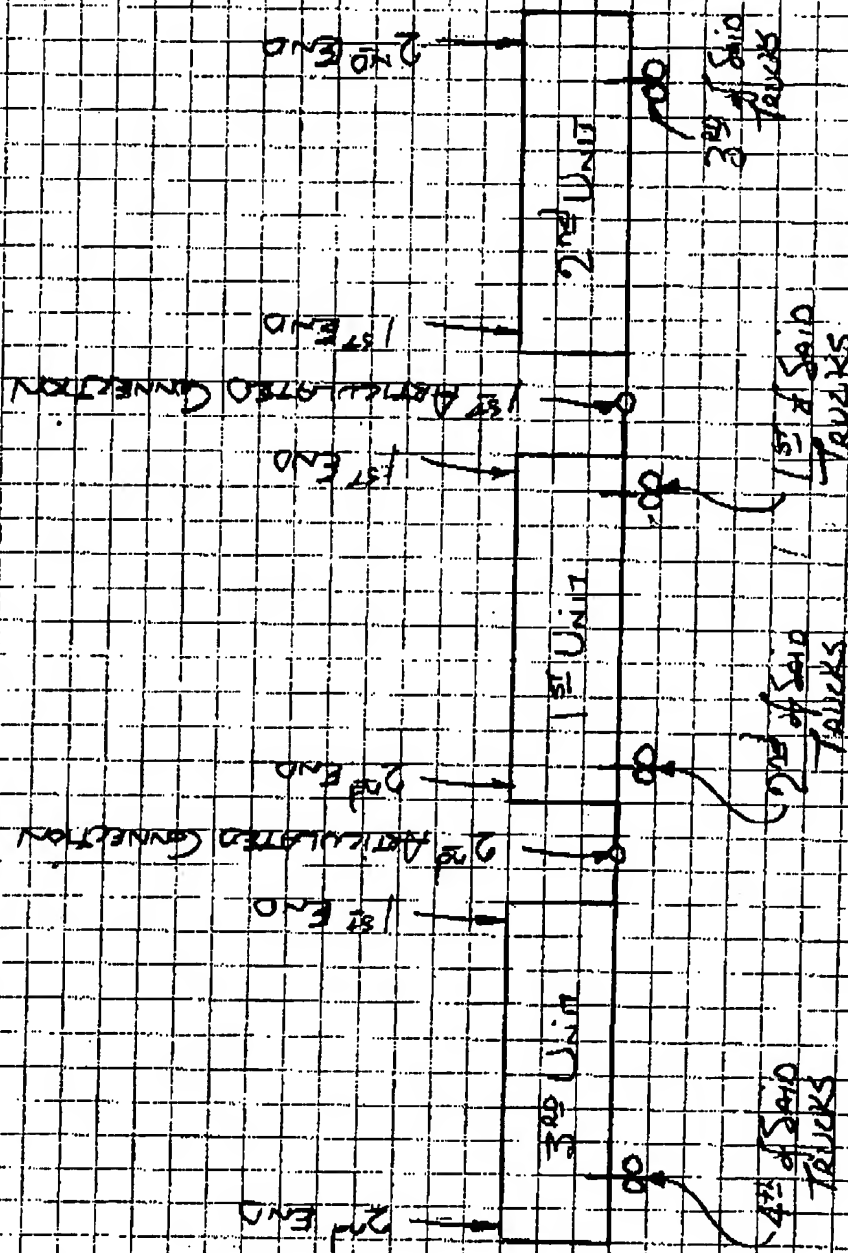 2ND END
3RD of SAID
TRUCKS
2nd UNIT
1ST END
1ST ARTICULATED CONNECTION
1ST END
1ST of SAID
TRUCKS
1ST UNIT
2nd of SAID
TRUCKS
2nd END
2nd ARTICULATED CONNECTION
1ST END
3RD UNIT
4th of SAID
TRUCKS
2nd END